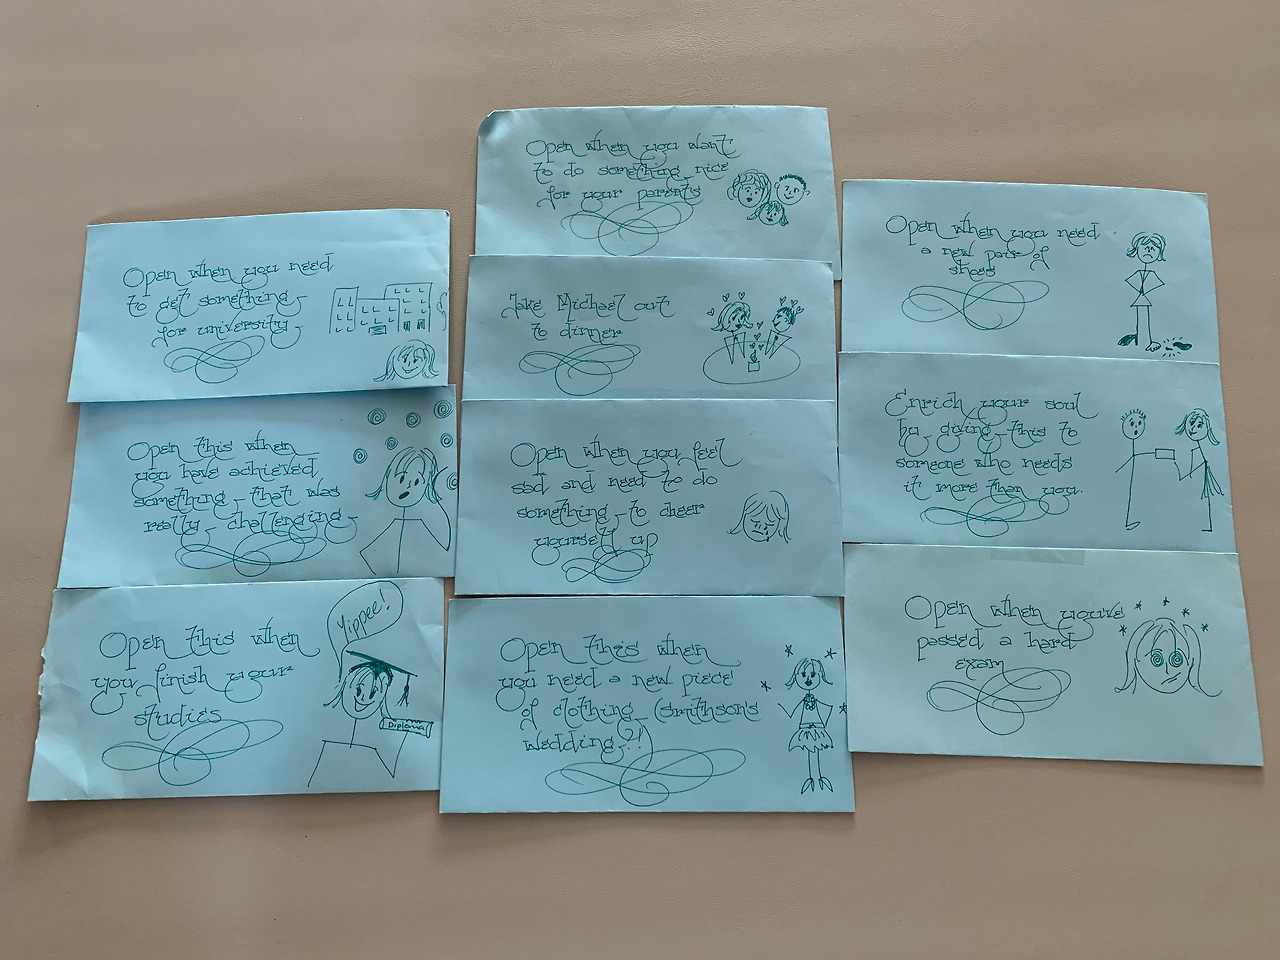 Open when you need
to get something
for university
Open this when
you have achieved
something that was
really challenging
Open this when
you finish your
studies
Yippee!
Diploma
Open when you want
to do something nice
for your parents
Take Michael out
to dinner
Open when you feel
sad and need to do
something to cheer
yourself up
Open this when
you need a new piece
of clothing (Smithson's
wedding?!)
Open when you need
a new pair of
shoes
Enrich your soul
by giving this to
someone who needs
it more than you.
Open when you've
passed a hard
exam